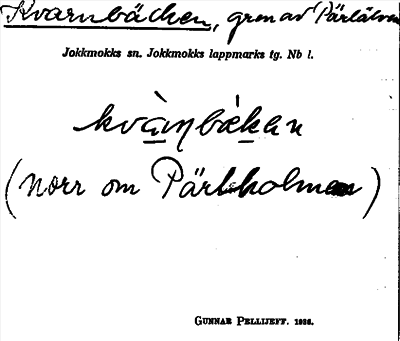 Kvarnbäcken, gren av Pärlälven
Jokkmokks sn. Jokkmokks lappmarks tg. Nb l.
kvàɳbèkan
(norr om Pärlholmen)
GUNNAR PELLIJEFF. 1936.